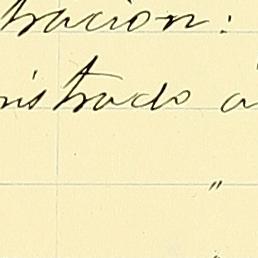 tracion:
nistrado a
"
"